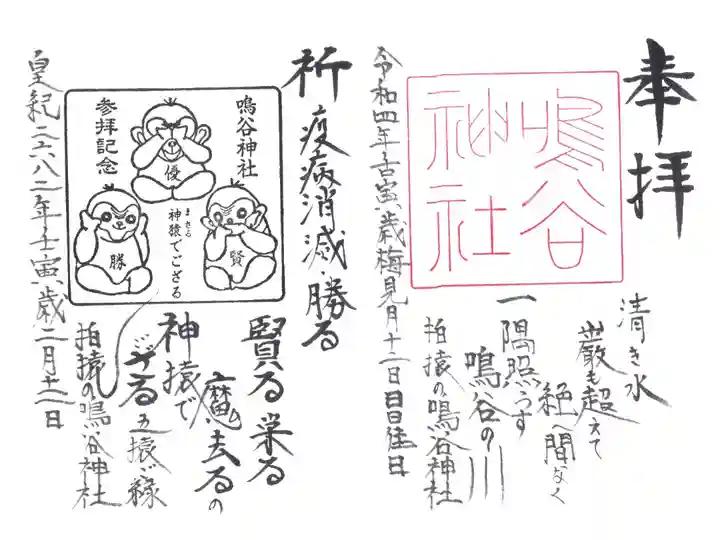 奉拝
鳴谷
神社
清き水
巌も超えて
絶へ間なく
一隅照らす
鳴谷の川
拍猿の鳴谷神社
令和四年壬寅歳梅見月十二日昌佳日
祈
疫病消滅・勝る
賢る栄る
魔去るの
神猿で
ござる五猿の縁
拍猿の鳴谷神社
鳴谷神社
参拝記念
優
勝
賢
神猿でござる
まさる
皇紀二六八二年壬寅歳二月十二日